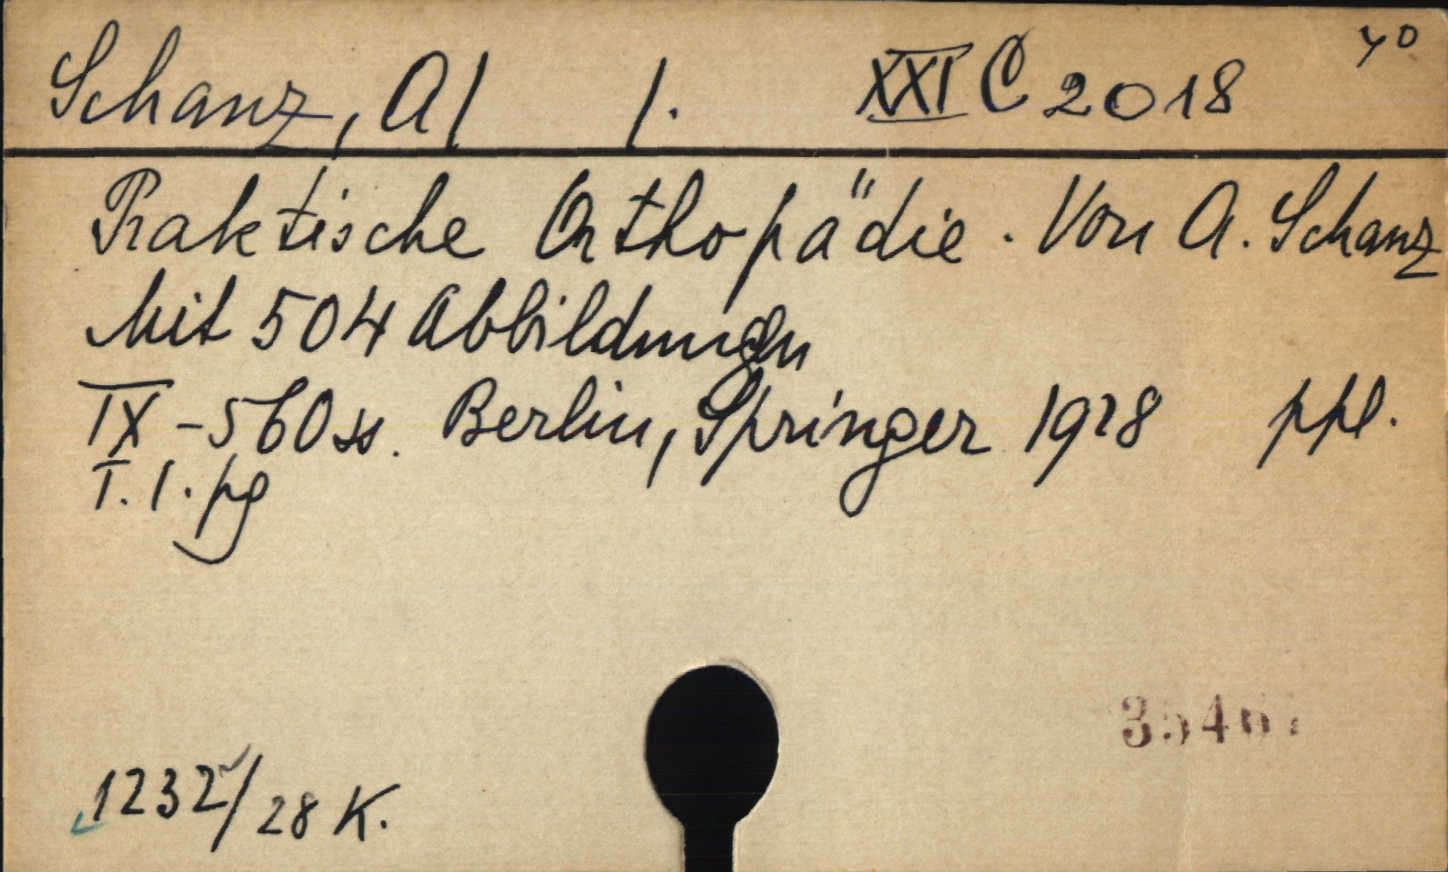 Schanz, A / /. XXI C 2018 4°
Praktische Orthopädie. Von A. Schanz
Mit 504 Abbildungen
IX-560 ss. Berlin, Springer 1928 ppl.
T. 1. pg
1232/28 K.